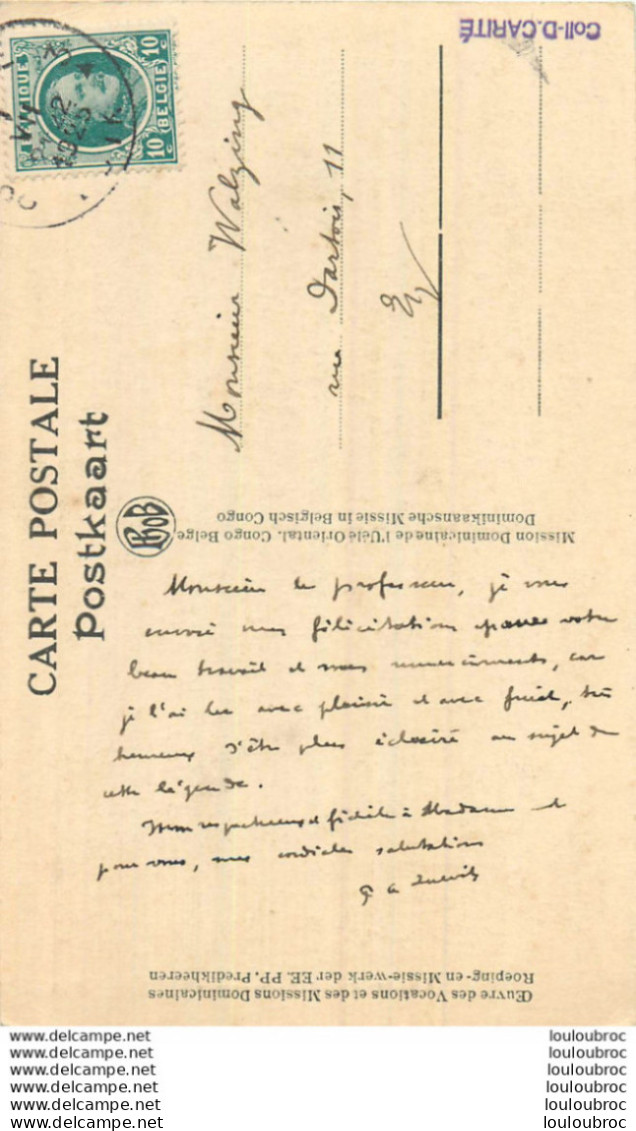 Coll-D.CARITÉ
BELGIQUE
10 BELGIE 10
CARTE POSTALE
Postkaart
Monsieur Walzing
rue Dartois, 11
E/V
Mission Dominicaine de l'Uélé Oriental. Congo Belge.
Dominikaansche Missie in Belgisch Congo
Monsieur le professeur, je vous
envoie mes félicitations pour votre
beau travail et mes remerciements, car
je l'ai lu avec plaisir et avec fruit, très
heureux d'être plus éclairé au sujet de
cette légende.
Mon respectueux et fidèle à Madame et
pour vous, mes cordiales salutations
Œuvre des Vocations et des Missions Dominicaines
Roeping- en Missie-werk der EE. PP. Predikheeren
www.delcampe.net louloubroc
www.delcampe.net louloubroc
www.delcampe.net louloubroc
www.delcampe.net louloubroc
www.delcampe.net louloubroc
www.delcampe.net louloubroc